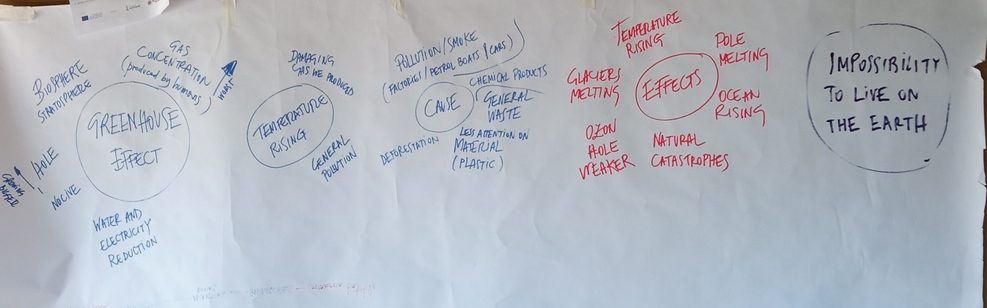 BIOSPHERE
STRATOSPHERE
GAS
CONCENTRATION
(produced by humans)
WORST
GREENHOUSE
EFFECT
HOLE
GROWING
NOCIVE
WATER AND
ELECTRICITY
REDUCTION
DAMAGING
GAS WE PRODUCED
TEMPERATURE
RISING
GENERAL
POLLUTION
POLLUTION/SMOKE
(FACTORIES/PETROL BOATS/CARS)
CAUSE
CHEMICAL PRODUCTS
GENERAL
WASTE
DEFORESTATION
LESS ATTENTION ON
MATERIAL
(PLASTIC)
TEMPERATURE
RISING
GLACIERS
MELTING
EFFECTS
POLE
MELTING
OCEAN
RISING
OZON
HOLE
WEAKER
NATURAL
CATASTROPHES
IMPOSSIBILITY
TO LIVE ON
THE EARTH